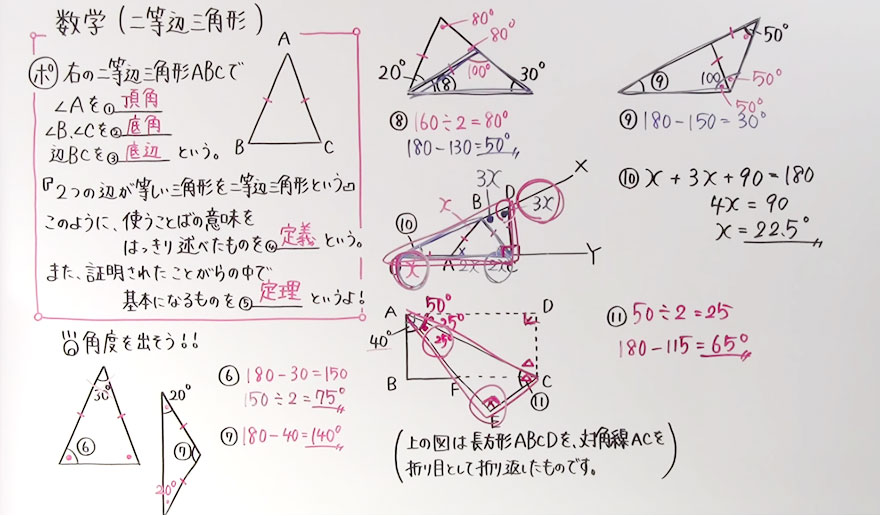 数学(二等辺三角形)
ポ 右の二等辺三角形ABCで
∠Aを① 頂角
∠B、∠Cを② 底角
辺BCを③ 底辺 という。
『2つの辺が等しい三角形を二等辺三角形という』
このように、使うことばの意味を
はっきり述べたものを④ 定義 という。
また、証明されたことがらの中で
基本になるものを⑤ 定理 というよ!
A
B
C
角度を出そう!!
30°
⑥
20°
⑦
20°
⑥ 180-30=150
150÷2=75°
⑦ 180-40=140°
80°
80°
20°
⑧
100°
30°
⑧ 160÷2=80°
180-130=50°
50°
⑨
100
50°
50°
⑨ 180-150=30°
X
3x
B
D
3x
x
⑩
x
A
2x
2x
C
Y
⑩ x+3x+90=180
4x=90
x=22.5°
A
50°
D
40°
25°
25°
B
F
C
E
⑪
⑪ 50÷2=25
180-115=65°
(上の図は長方形ABCDを、対角線ACを
折り目として折り返したものです。)